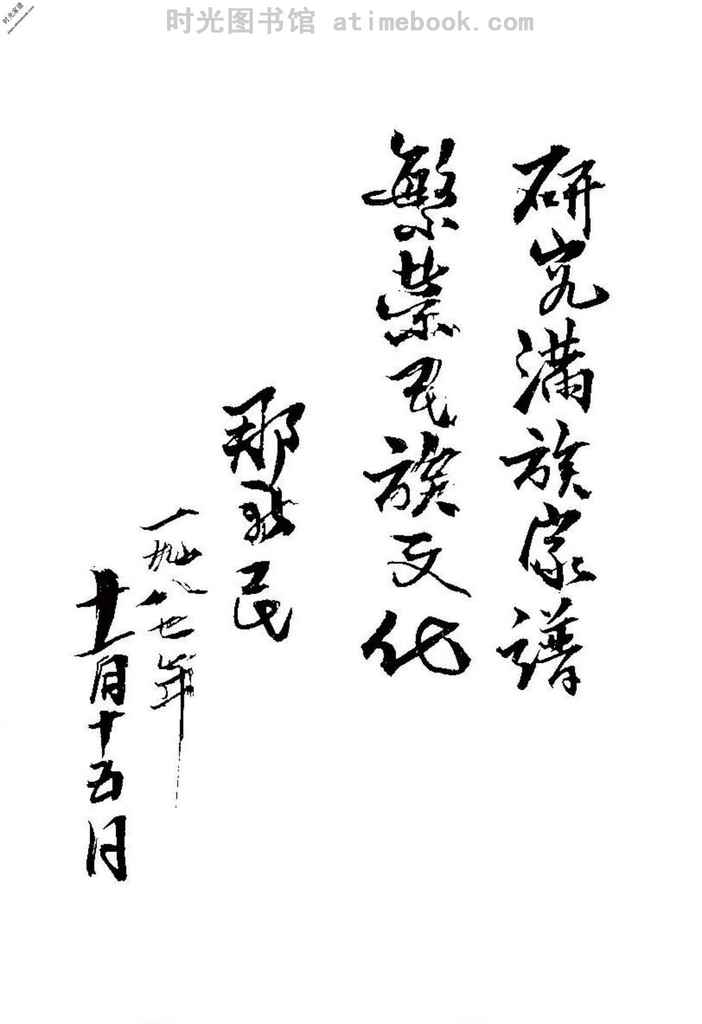 时光图书馆 atimebook.com
时光家谱
研究满族家谱
繁荣民族文化
那 民
一九八七年
十一月十五日